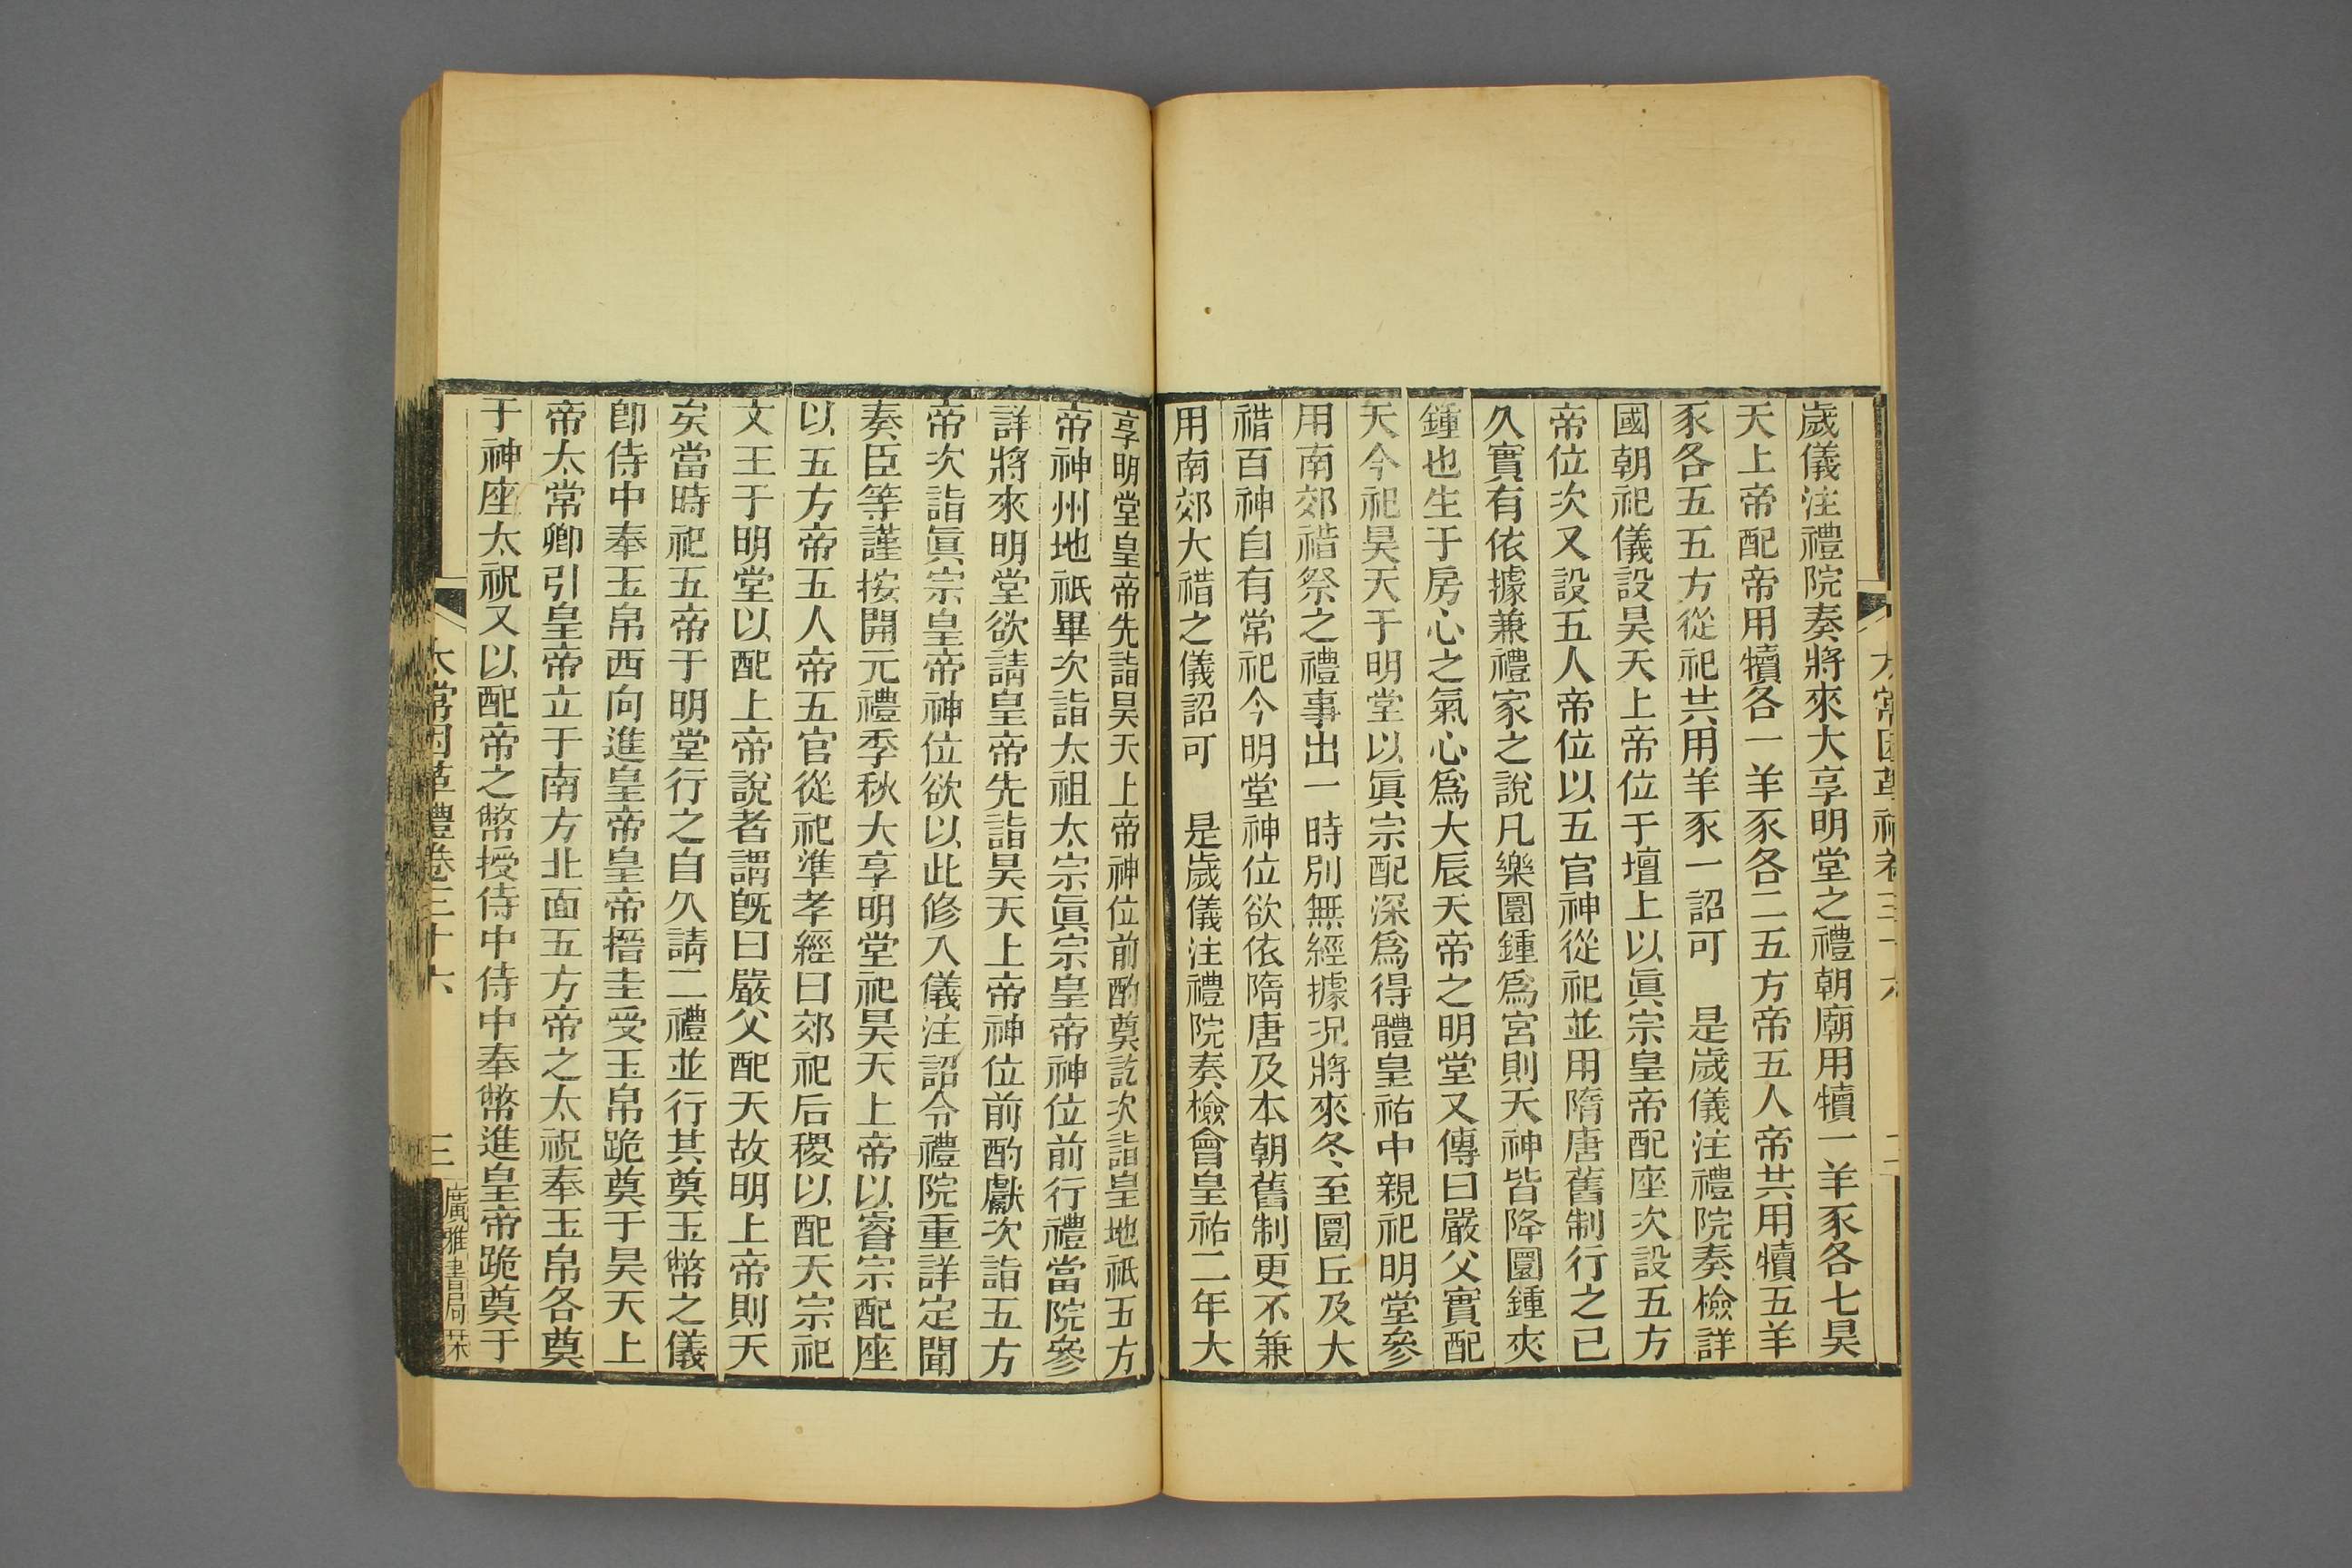 歲儀注禮院奏將來大享明堂之禮朝廟用犢一羊豕各七昊
天上帝配帝用犢各一羊豕各二五方帝五人帝共用犢五羊
豕各五五方從祀共用羊豕一詔可　是歲儀注禮院奏檢詳
國朝祀儀設昊天上帝位于壇上以眞宗皇帝配座次設五方
帝位次又設五人帝位以五官神從祀並用隋唐舊制行之已
久實有依據兼禮家之說凡樂圜鍾爲宮則天神皆降圜鍾夾
鍾也生于房心之氣心爲大辰天帝之明堂又傳曰嚴父實配
天今祀昊天于明堂以眞宗配深爲得體皇祐中親祀明堂參
用南郊褅祭之禮事出一時別無經據況將來冬至圜丘及大
褅百神自有常祀今明堂神位欲依隋唐及本朝舊制更不兼
用南郊大褅之儀詔可　是歲儀注禮院奏檢會皇祐二年大
享明堂皇帝先詣昊天上帝神位前酌奠訖次詣皇地祇五方
帝神州地祇畢次詣太祖太宗眞宗皇帝神位前行禮當院參
詳將來明堂欲請皇帝先詣昊天上帝神位前酌獻次詣五方
帝次詣眞宗皇帝神位欲以此修入儀注詔令禮院重詳定聞
奏臣等謹按開元禮季秋大享明堂祀昊天上帝以睿宗配座
以五方帝五人帝五官從祀準孝經曰郊祀后稷以配天宗祀
文王于明堂以配上帝說者謂既曰嚴父配天故明上帝則天
矣當時祀五帝于明堂行之自久請二禮並行其奠玉幣之儀
卽侍中奉玉帛西向進皇帝皇帝搢圭受玉帛跪奠于昊天上
帝太常卿引皇帝立于南方北面五方帝之太祝奉玉帛各奠
于神座太祝又以配帝之幣授侍中侍中奉幣進皇帝跪奠于
太常因革禮卷三十六　三　廣雅書局栞